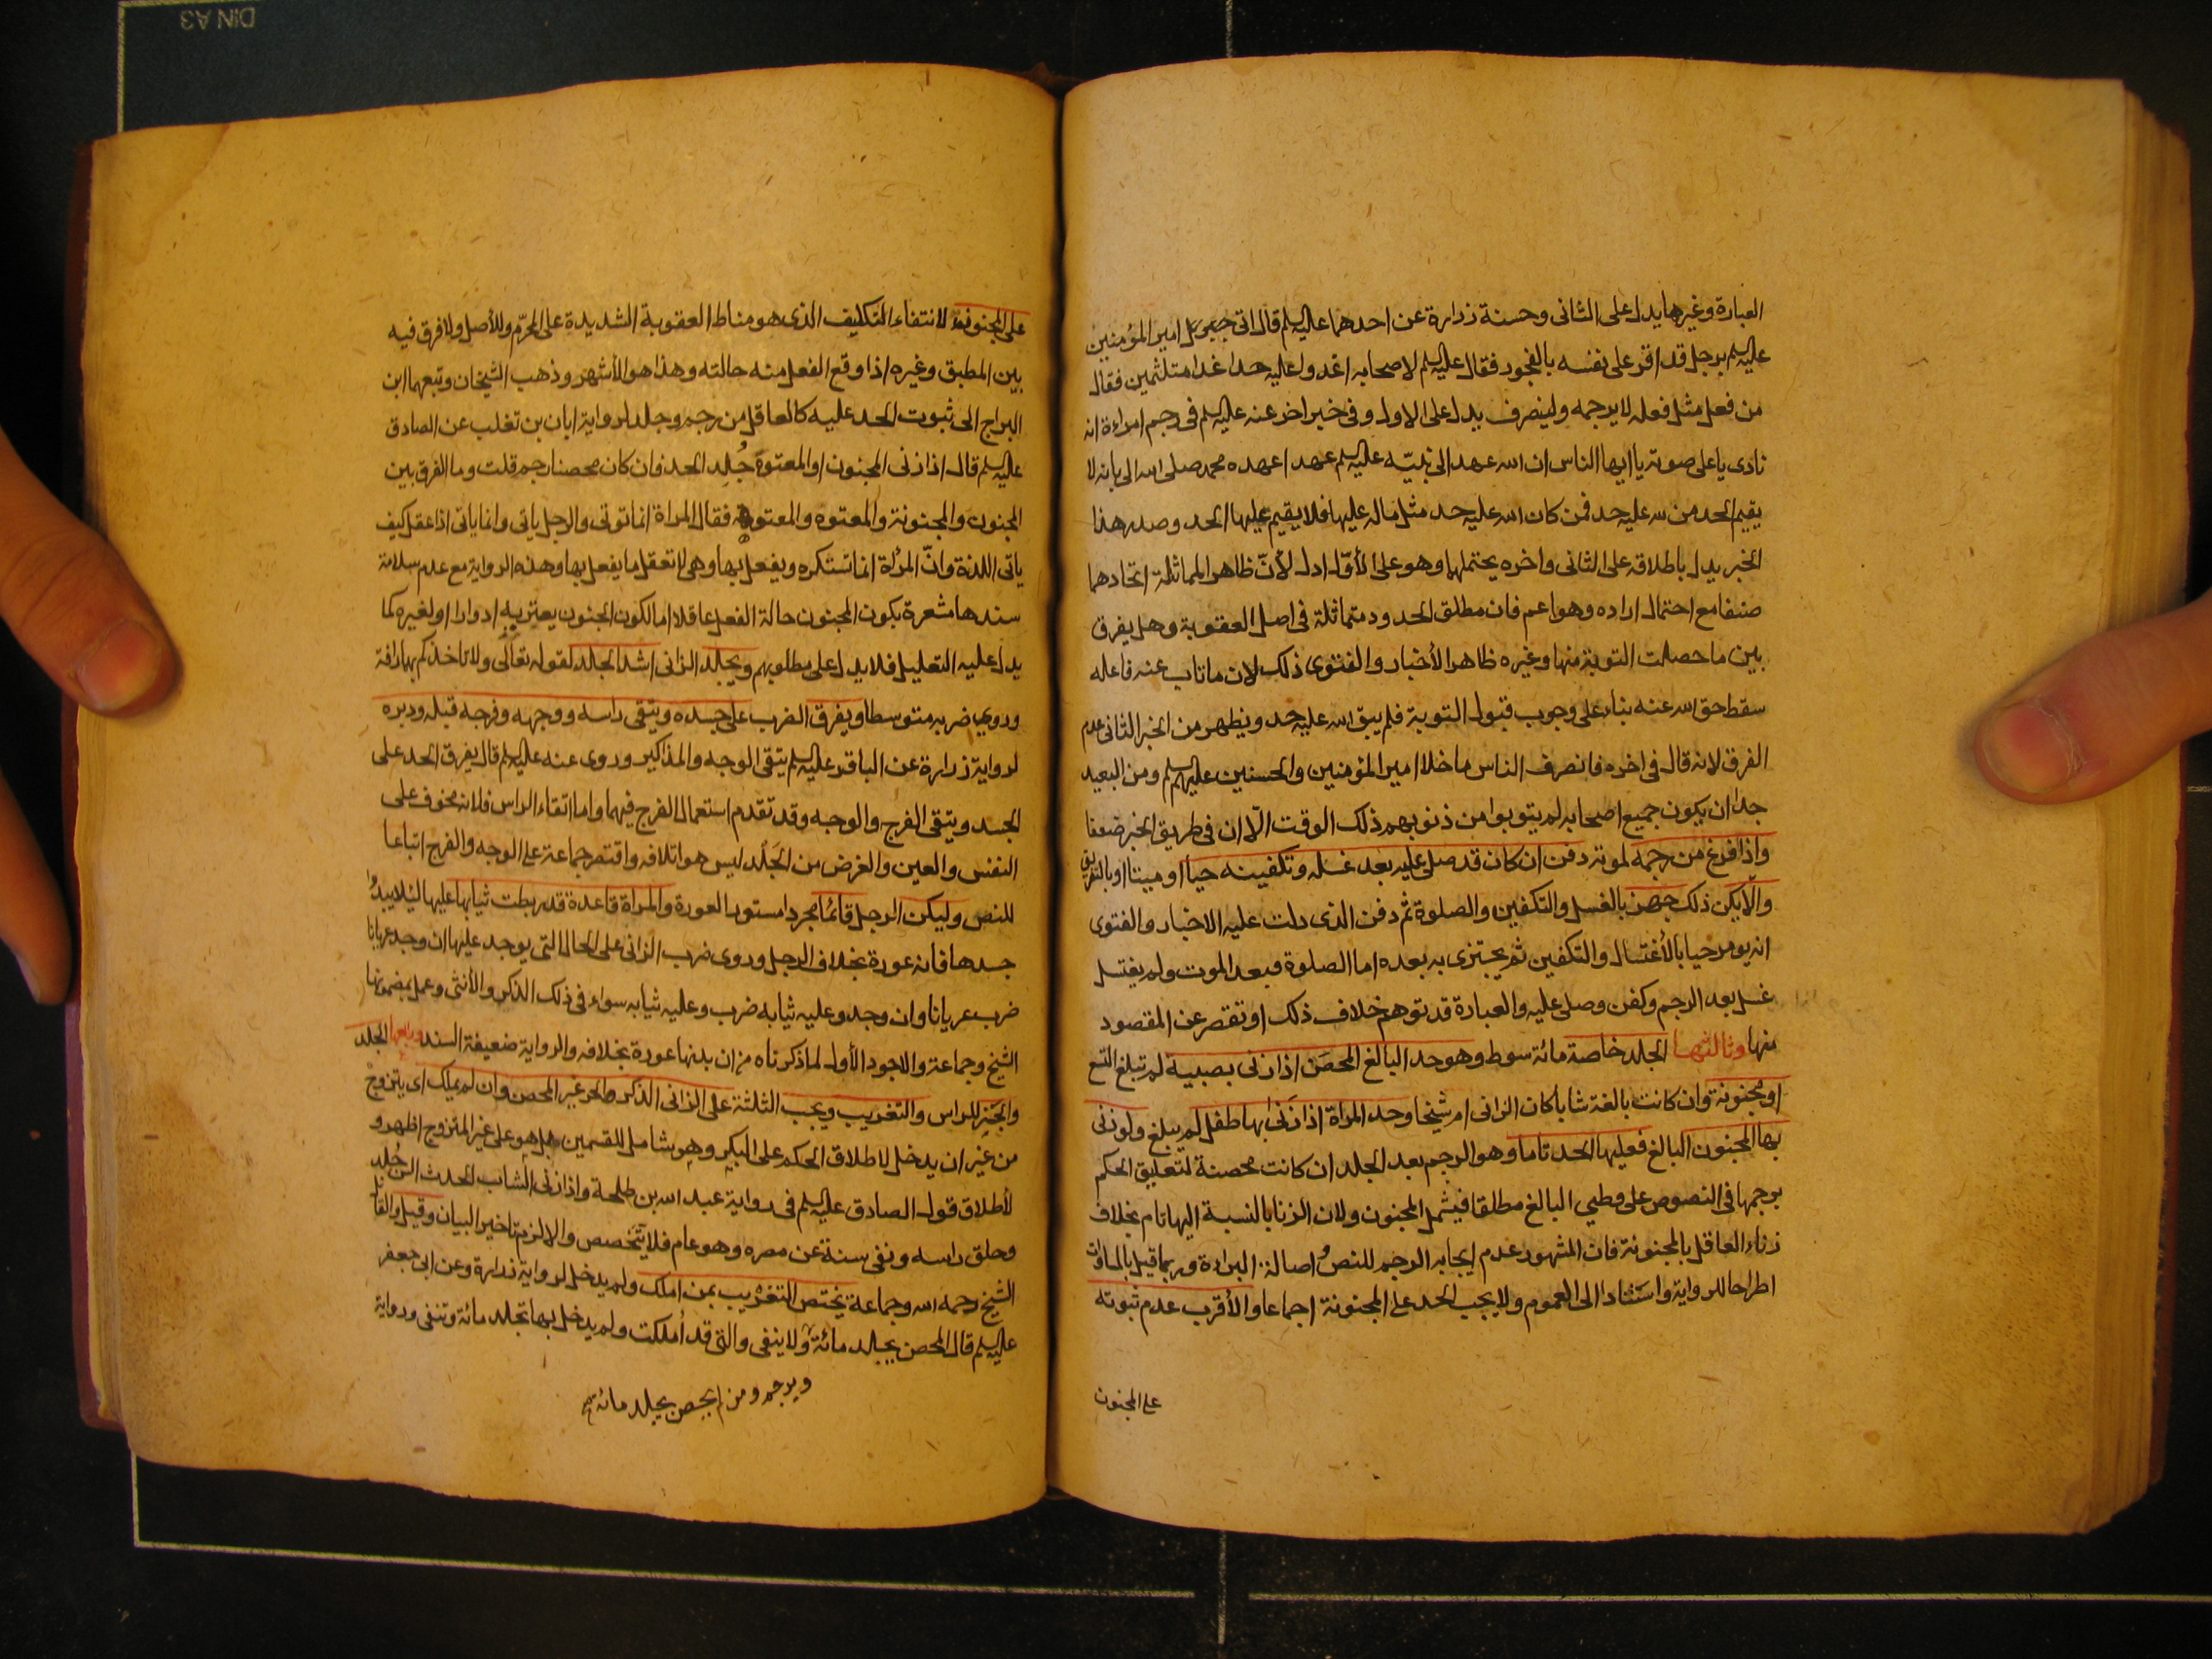 العبارة وغيرها يدل على الثانى وحسنة زرارة عن احدهما عليه السلم قال اتى امير المؤمنين
عليه السلم برجل قد اقر على نفسه بالفجور فقال عليه السلم لاصحابه اغدوا عليه غدا متلثمين فقال
من فعل مثل فعله لا يرجمه ولينصرف يدل على الاول وفى خبر اخر عنه عليه السلم فى رجم امراءة انه
نادى باعلى صوته يا ايها الناس ان الله عهد الى نبيّه عليه السلم عهدا عهده محمد صلى الله الى بانه لا
يقيم الحد من لله عليه حد فمن كان لله عليه حد مثل ماله عليها فلا يقيم عليها الحد وصدر هذا
الخبر يدل باطلاقه على الثانى واخره يحتملهما وهو على الأوّل ادل لأنّ ظاهر المماثلة اتحادهما
صنفا مع احتمال ارادة وهو اعم فان مطلق الحدود متماثلة فى اصل العقوبة وهل يفرق
بين ما حصلت التوبة منها وغيره ظاهر الأخبار والفتوى ذلك لان ما تاب عنه فاعله
سقط حق الله عنه بناء على وجوب قبول التوبة فلم يبق لله عليه حد ويظهر من الخبر الثانى عدم
الفرق لانه قال فى اخره فانصرف الناس ما خلا امير المؤمنين والحسنين عليهم السلم ومن البعيد
جدا ان يكون جميع اصحابه لم يتوبوا من ذنوبهم ذلك الوقت الّا ان فى طريق الخبر ضعفا
واذا فرغ من رجمه لموته دفن ان كان قد صلى عليه بعد غسله وتكفينه حيا او ميتا او بالتفريق
والا يكن ذلك جهز بالغسل والتكفين والصلوة ثم دفن الذى دلت عليه الاخبار والفتوى
انه يومر حيا بالأغتسال والتكفين ثم يجتزى به بعده اما الصلوة فبعد الموت ولو لم يغتسل
غسل بعد الرجم وكفن وصلى عليه والعبارة قد توهم خلاف ذلك او تقصر عن المقصود
منها وثالثها الجلد خاصة مائة سوط وهو حد البالغ المحصَن اذا زنى بصبية لم تبلغ التسع
او مجنونة وان كانت بالغة شابا كان الزانى ام شيخا وحد المراة اذا زَنىٰ بها طفل لم يبلغ ولو زنى
بها المجنون البالغ فعليها الحد تاما وهو الرجم بعد الجلد ان كانت محصنة لتعليق الحكم
برجمها فى النصوص على وطيى البالغ مطلقا فيشمل المجنون ولان الزنا بالنسبة اليها تام بخلاف
زناء العاقل بالمجنونة فان المشهور عدم ايجابه الرجم للنص و اصالة البراءة وربما قيل بالمساوات
اطراحا للرواية واستنادا الى العموم ولا يجب الحد على المجنونة اجماعا والأقرب عدم ثبوته
على المجنون
على المجنونة لانتفاء التكليف الذى هو مناط العقوبة الشديدة على المحرّم وللأصل ولا فرق فيه
بين المطبق وغيره اذا وقع الفعل منه حالته وهذا هو الأشهر وذهب الشيخان وتبعهما ابن
البراج الى ثبوت الحد عليه كالعاقل من رجم وجلد لرواية ابان بن تغلب عن الصادق
عليه السلم قال اذا زنى المجنون او المعتوه جُلِد الحد فان كان محصنا رجم قلت وما الفرق بين
المجنون والمجنونة والمعتوه والمعتوهة فقال المراة انما توتى والرجل ياتى وانما ياتى اذا عقل كيف
ياتى اللذة وانّ المرأة انما تستكره ويفعل بها وهى لا تعقل ما يفعل بها وهذه الرواية مع عدم سلامة
سندها مشعرة بكون المجنون حالة الفعل عاقلا اما لكون الجنون يعتريه ادوارا او لغيره كما
يدل عليه التعليل فلا يدل على مطلوبهم ويجلد الزانى اشد الجلد لقوله تعالى ولا تاخذكم بهما رافة
وروي ضربه متوسطا ويفرق الضرب على جسده ويتقى راسه ووجهه وفرجه قبله ودبره
لرواية زرارة عن الباقر عليه السلم يتقى الوجه والمذاكير وروى عنه عليه السلم قال يفرق الحد على
الجسد ويتقى الفرج والوجه وقد تقدم استعمال الفرج فيهما واما اتقاء الراس فلانه مخوف على
النفس والعين والغرض من الجَلْد ليس هو اتلافه واقتصر جماعة على الوجه والفرج اتباعا
للنص وليكن الرجل قائمًا مجردا مستور العورة والمراة قاعدة قد ربطت ثيابها عليها لئلا يبدوا
جسدها فانه عورة بخلاف الرجل وروى ضرب الزانى على الحال التى يوجد عليها ان وجد عريانا
ضرب عريانا وان وجد وعليه ثيابه ضرب وعليه ثيابه سواء فى ذلك الذكر والأنثى وعمل بمضمونها
الشيخ وجماعة والاجود الأول لما ذكرناه من ان بدنها عورة بخلافه والرواية ضعيفة السند ورابعها الجلد
والجَز للراس والتغريب ويجب الثلثة على الزانى الذكر الحر غير المحصن وان لم يملك اى يتزوج
من غير ان يدخل لاطلاق الحكم على البكر وهو شامل للقسمين بل هو على غير المتزوج اظهر و
لأطلاق قول الصادق عليه السلم فى رواية عبد الله بن طلحة واذا زنى الشاب الحدث السن جُلد
وحلق راسه ونفى سنة عن مصره وهو عام فلا يتخصص والا لزم تاخير البيان وقيل والقائل
الشيخ رحمه الله وجماعة يختص التغريب بمن املك ولم يدخل لرواية زرارة وعن ابى جعفر
عليه السلم قال المحصن يجلد مائة ولا ينفى والتى قد أُملكت ولم يدخل بها تجلد مائة وتنفى ورواية
ويرجم ومن لم يحصن يجلد مائة